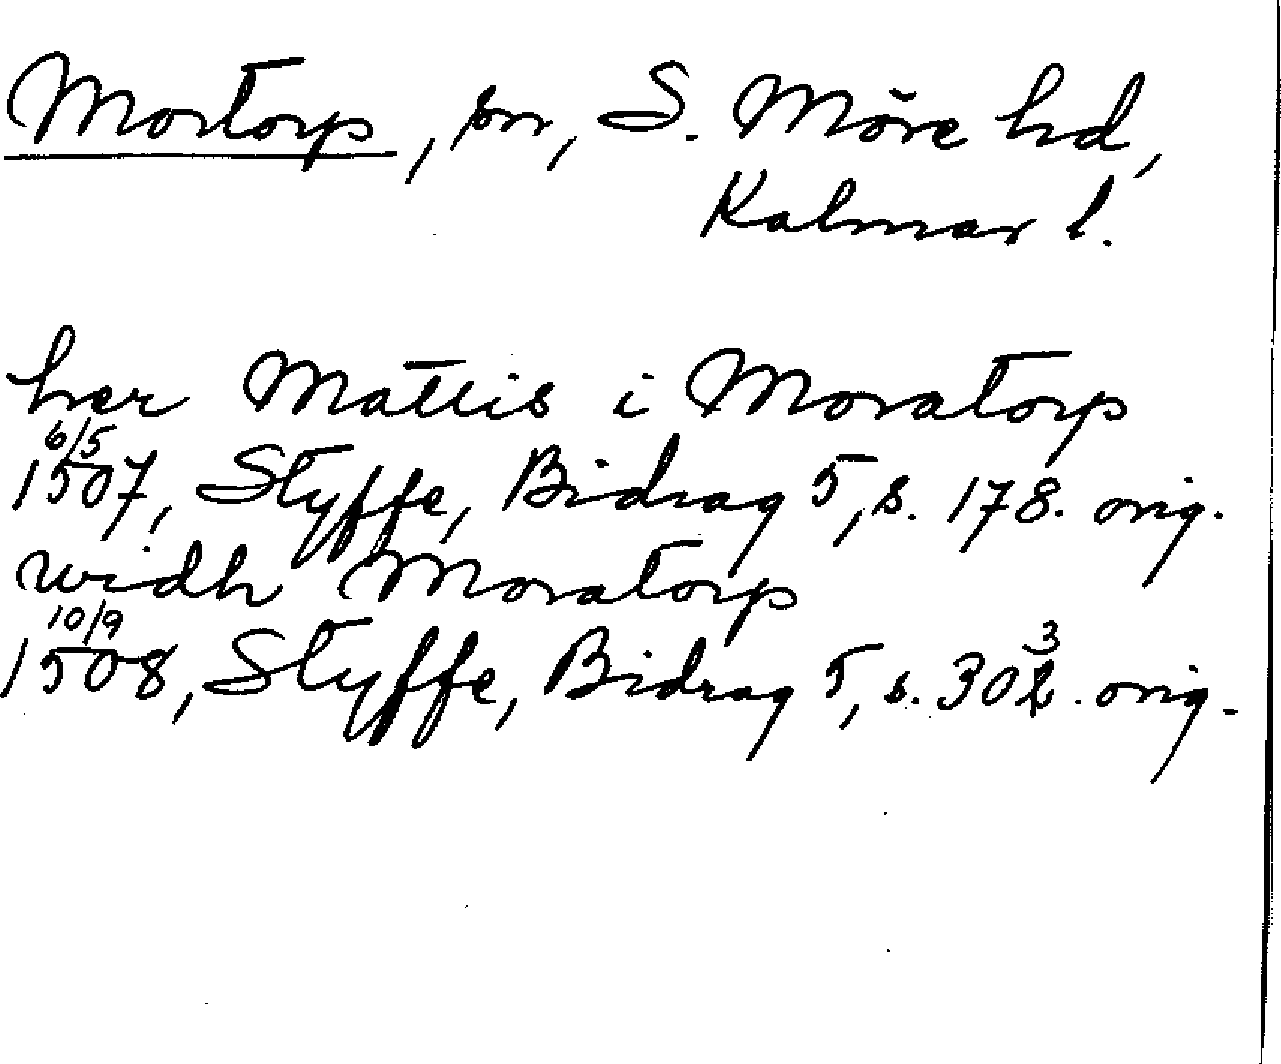 Mortorp, sn, S. Möre hd,
Kalmar l.
her Mattis i Moratorp
6/5
1507, Styffe, Bidrag 5, s. 178. orig.
widh Moratorp
10/9
1508, Styffe, Bidrag 5, s. 303. orig.